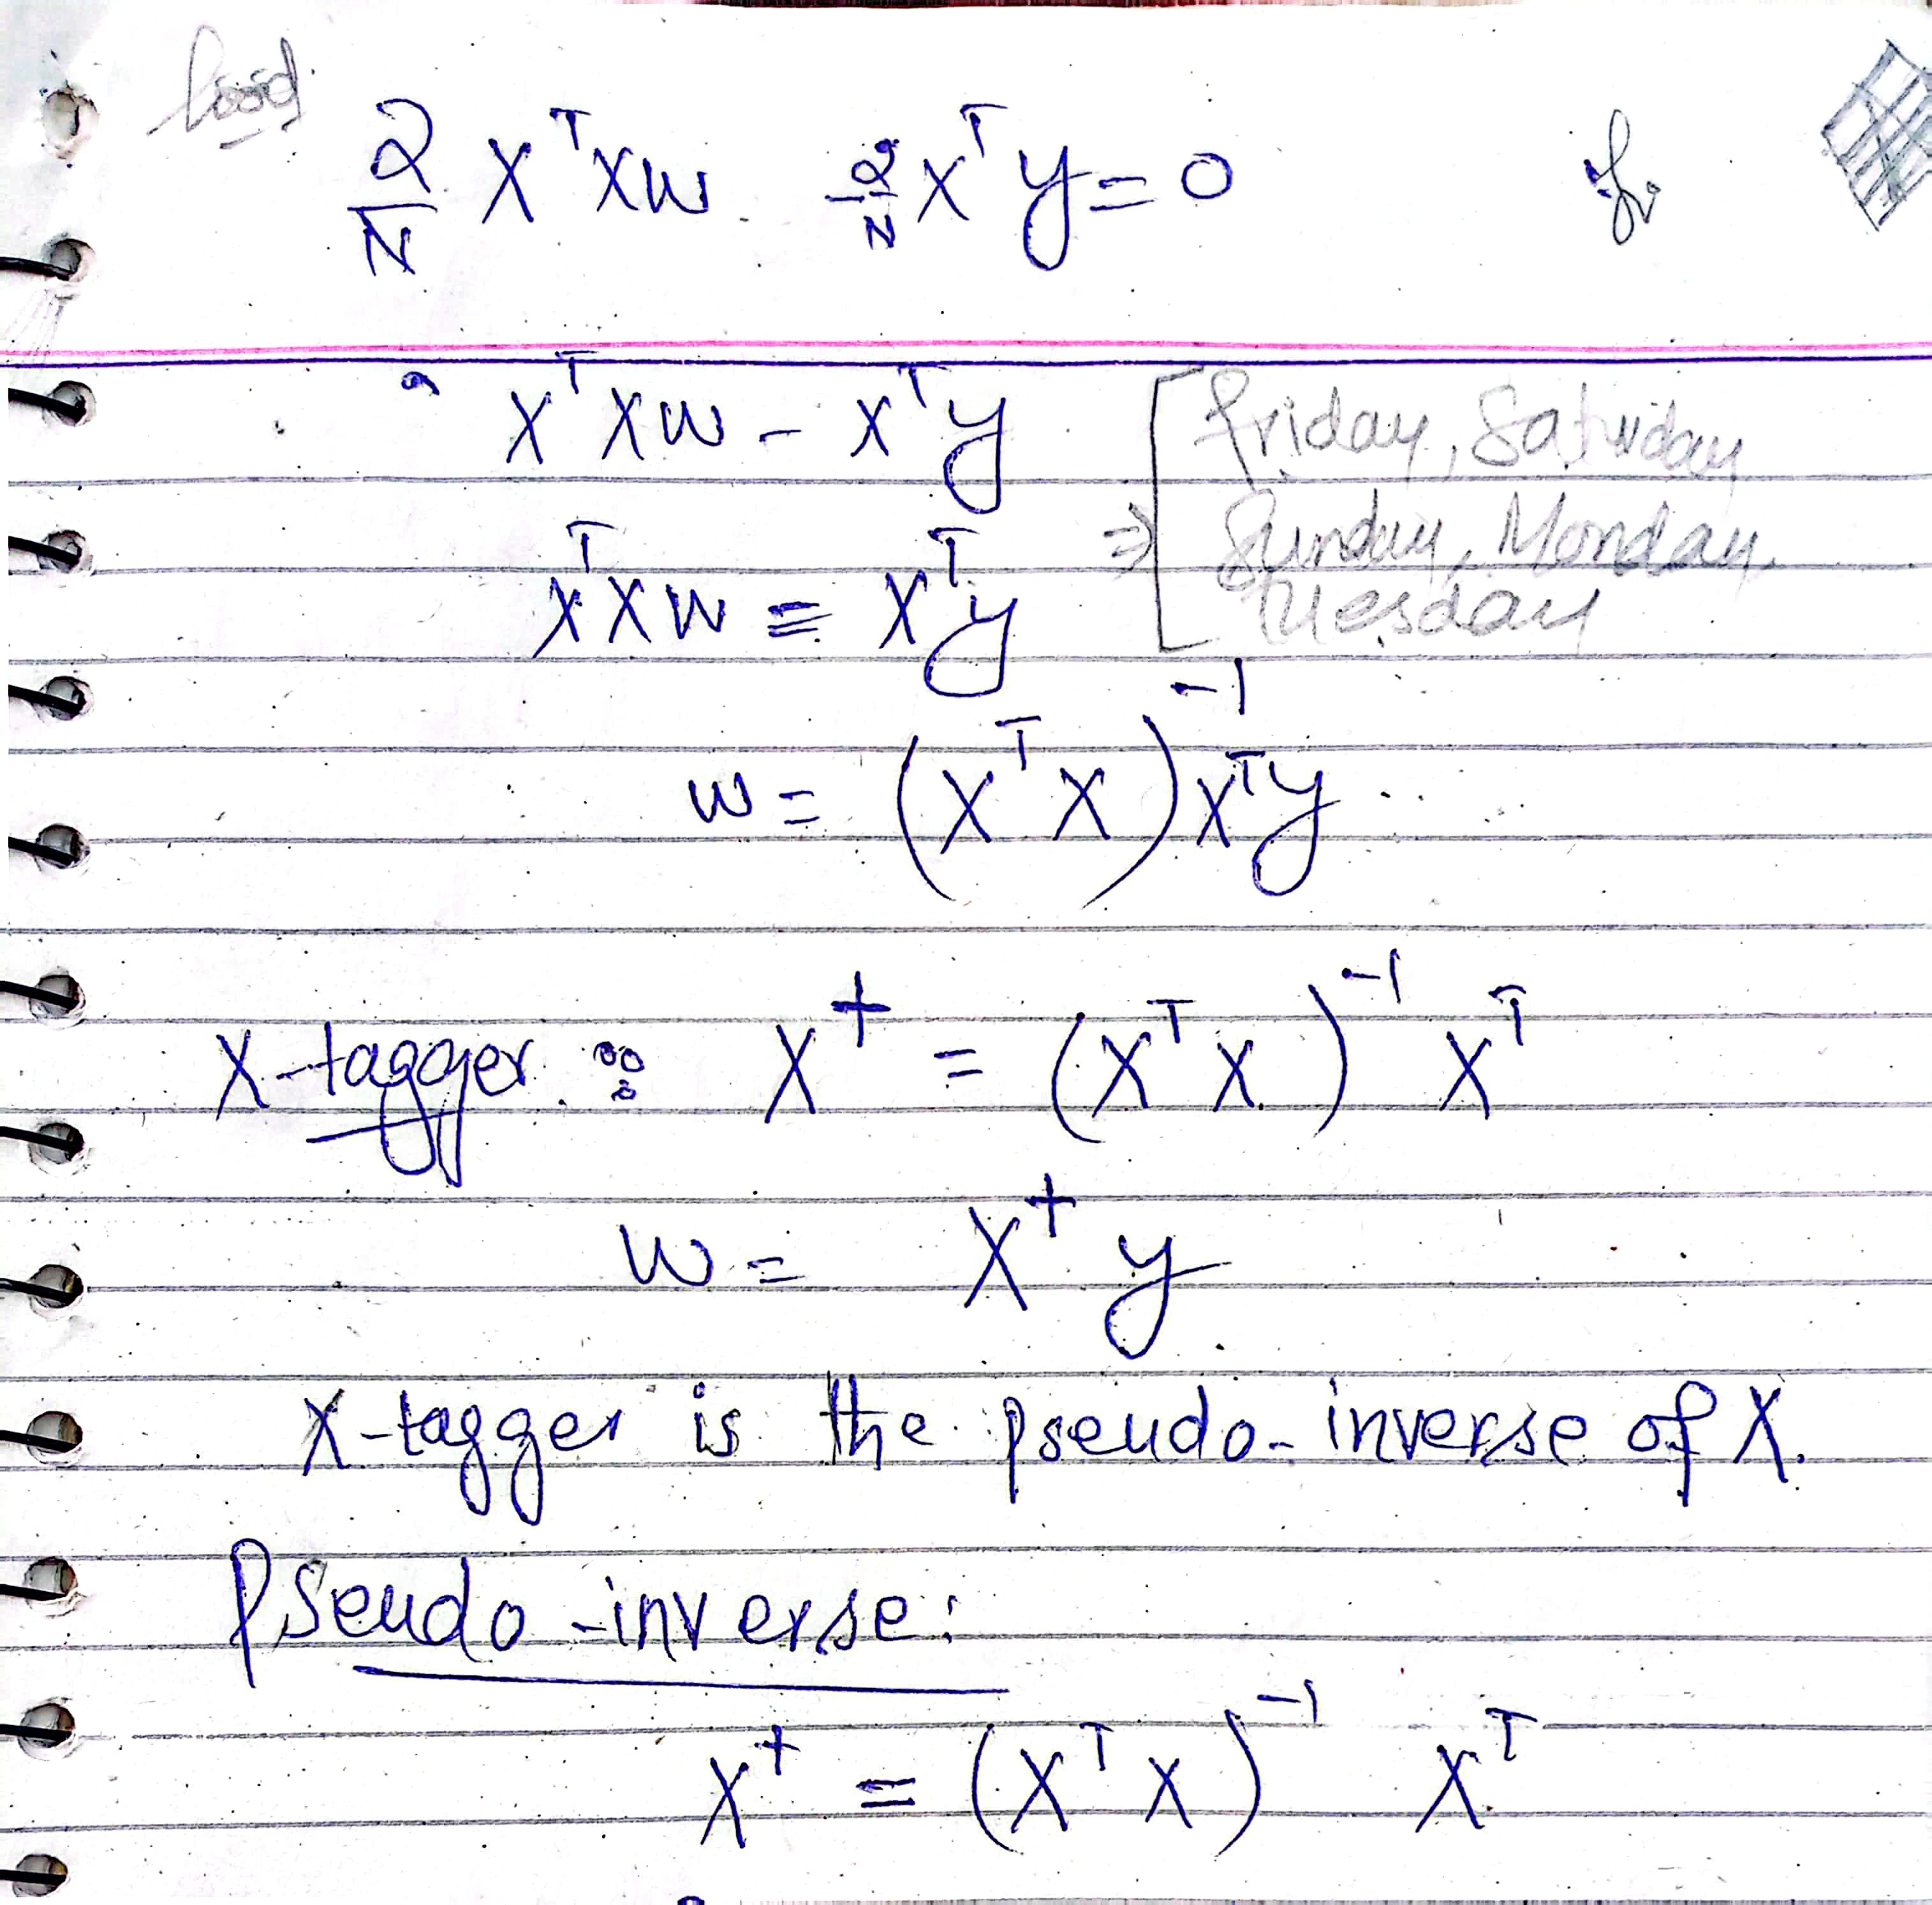 Good
2/N XᵀXw - 2/N Xᵀy = 0
XᵀXw - Xᵀy
Friday, Saturday
Sunday, Monday,
Tuesday
⇒
XᵀXw = Xᵀy
w = (XᵀX)⁻¹Xᵀy
X-tagger : X⁺ = (XᵀX)⁻¹ Xᵀ
w = X⁺ y
X-tagger is the pseudo-inverse of X.
Pseudo-inverse:
X⁺ = (XᵀX)⁻¹ Xᵀ